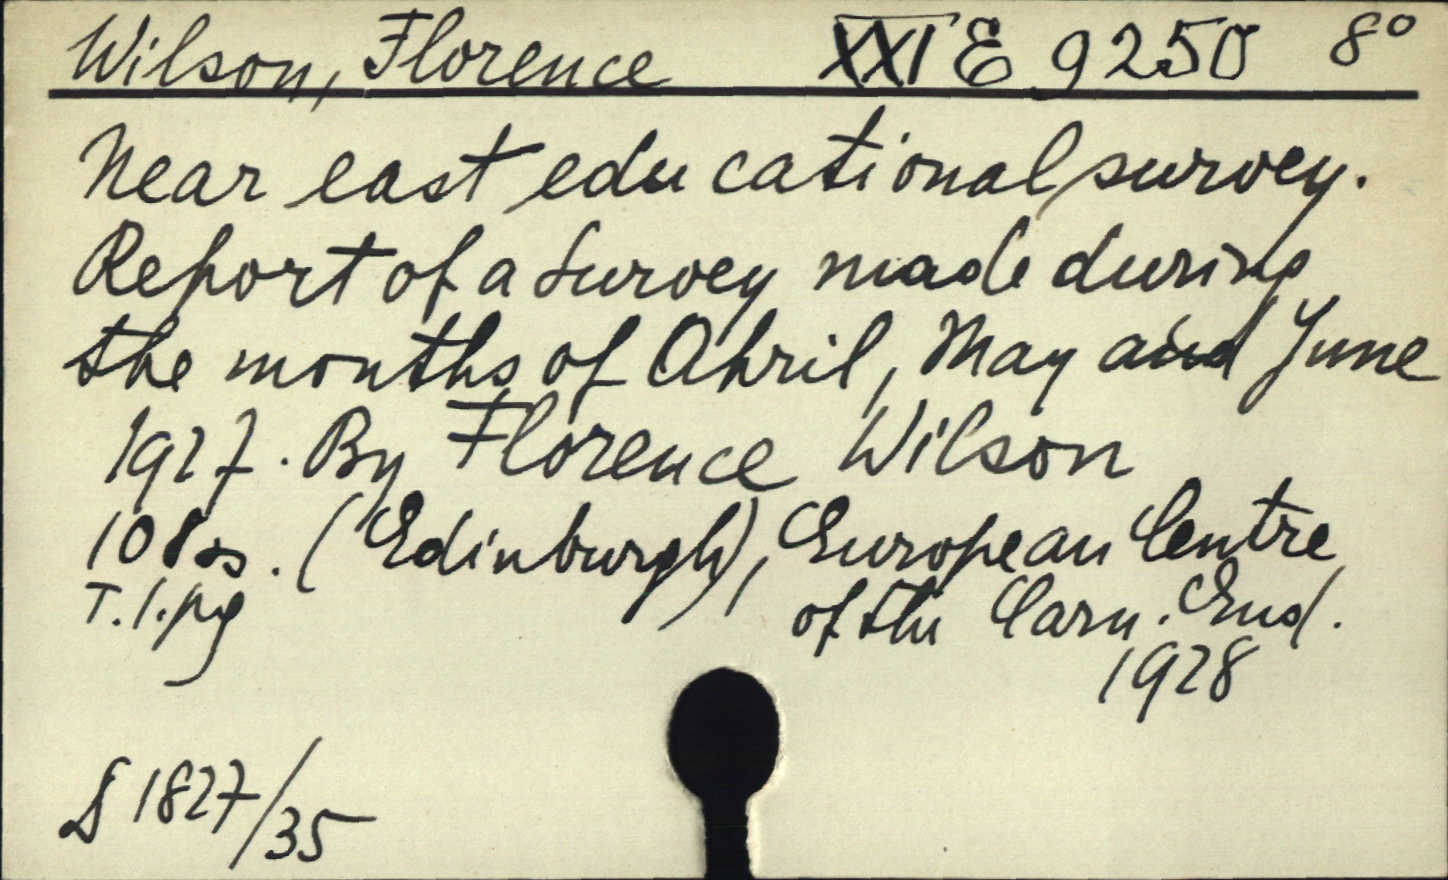 Wilson, Florence XXI E 9250 8°
Near east educational survey.
Report of a Survey made during
the months of April, May and June
1927. By Florence Wilson
108 s. (Edinburgh), European Centre
T. 1. pg of the Carn. End.
1928
D 1827/35